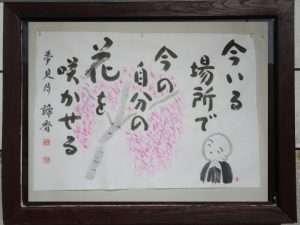 今いる
場所で
今の
自分の
花を
咲かせる
夢見月